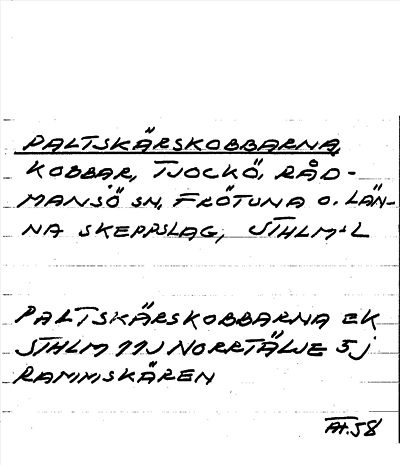 PALTSKÄRSKOBBARNA,
KOBBAR, TJOCKÖ, RÅD-
MANSÖ SN, FRÖTUNA O. LÄN-
NA SKEPPSLAG, STHLM:L
PALTSKÄRSKOBBARNA EK
STHLM 11J NORRTÄLJE 5j
RAMMSKÄREN
58